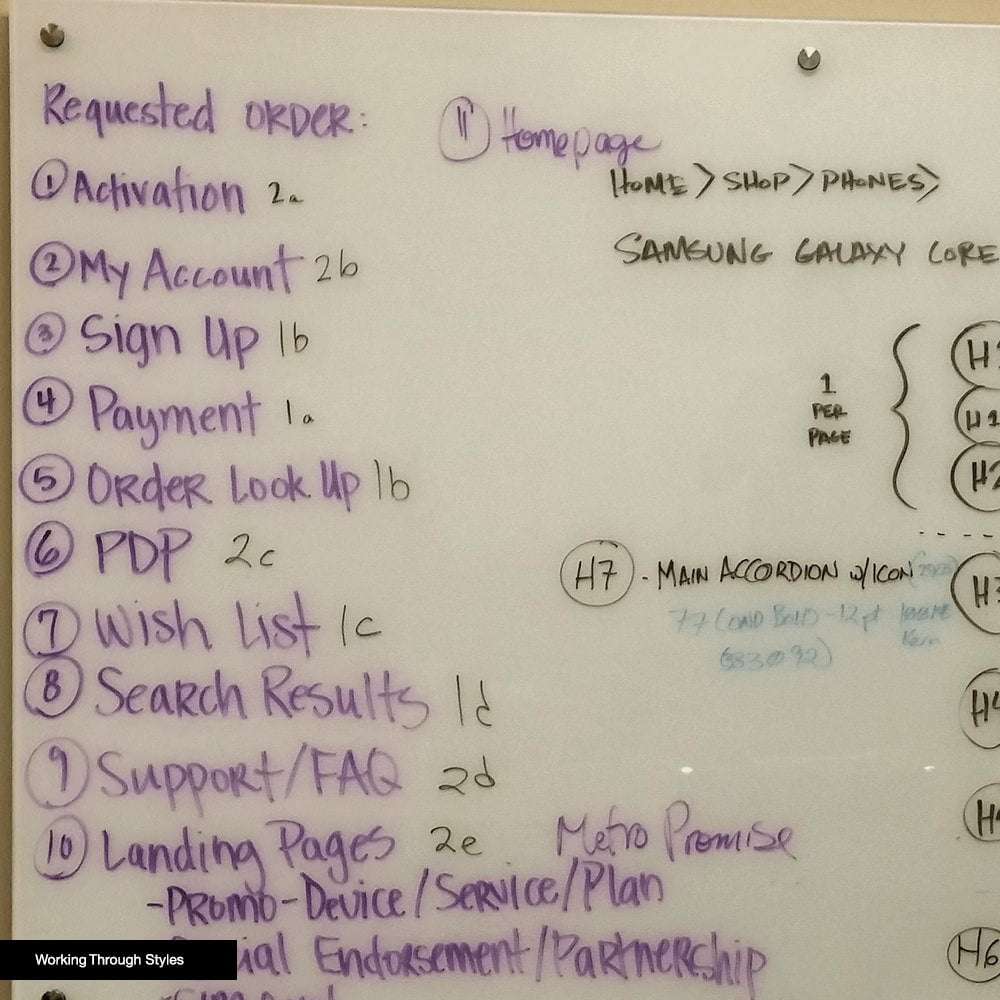 Requested ORDER:
① Activation 2a
② My Account 2b
③ Sign Up 1b
④ Payment 1a
⑤ Order Look Up 1b
⑥ PDP 2c
⑦ Wish List 1c
⑧ Search Results 1d
⑨ Support/FAQ 2d
⑩ Landing Pages 2e
-Promo-Device/Service/Plan
Endorsement/Partnership
⑪ Homepage
HOME > SHOP > PHONES >
SAMSUNG GALAXY CORE
1
PER
PAGE
H1
H2
H7 - MAIN ACCORDION W/ICON
77 COND BOLD - 12pt
H3
H4
H6
Metro Promise
Working Through Styles